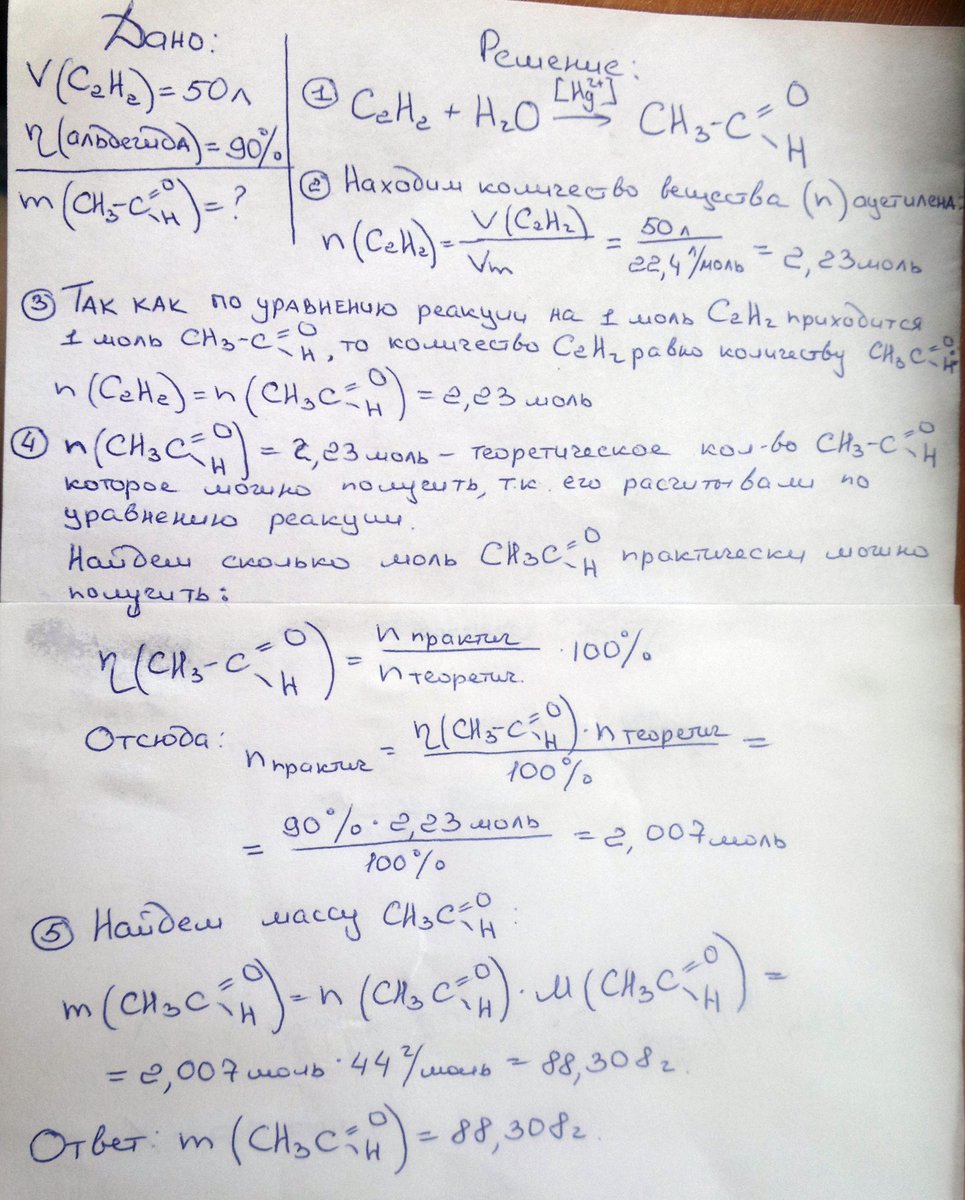 Дано:
V(C₂H₂) = 50 л
η(альдегида) = 90%
m(CH₃-C=O-H) = ?
Решение:
① C₂H₂ + H₂O [Hg²⁺]→ CH₃-C=O-H
② Находим количество вещества (n) ацетилена:
n(C₂H₂) = V(C₂H₂)/Vm = 50 л/22,4 л/моль = 2,23 моль
③ Так как по уравнению реакции на 1 моль C₂H₂ приходится
1 моль CH₃-C=O-H, то количество C₂H₂ равно количеству CH₃C=O-H:
n(C₂H₂) = n(CH₃C=O-H) = 2,23 моль
④ n(CH₃C=O-H) = 2,23 моль – теоретическое кол-во CH₃-C=O-H
которое можно получить, т.к. его расчитывали по
уравнению реакции.
Найдем сколько моль CH₃C=O-H практически можно
получить:
η(CH₃-C=O-H) = n практич/n теоретич. · 100%
Отсюда: n практич = η(CH₃-C=O-H) · n теоретич/100% =
= 90% · 2,23 моль/100% = 2,007 моль
⑤ Найдем массу CH₃C=O-H:
m(CH₃C=O-H) = n(CH₃C=O-H) · M(CH₃C=O-H) =
= 2,007 моль · 44 г/моль = 88,308 г.
Ответ: m(CH₃C=O-H) = 88,308 г.